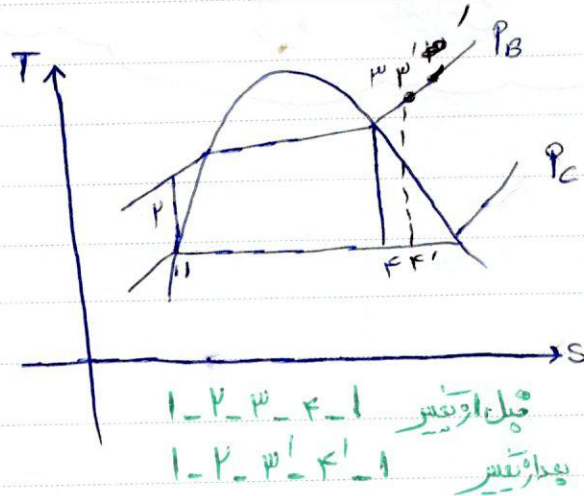 T
۳ ۳'
P_B
P_C
۲
۱
۴ ۴'
S
قبل از تغییر ۱-۲-۳-۴-۱
بعد از تغییر ۱-۲-۳'-۴'-۱